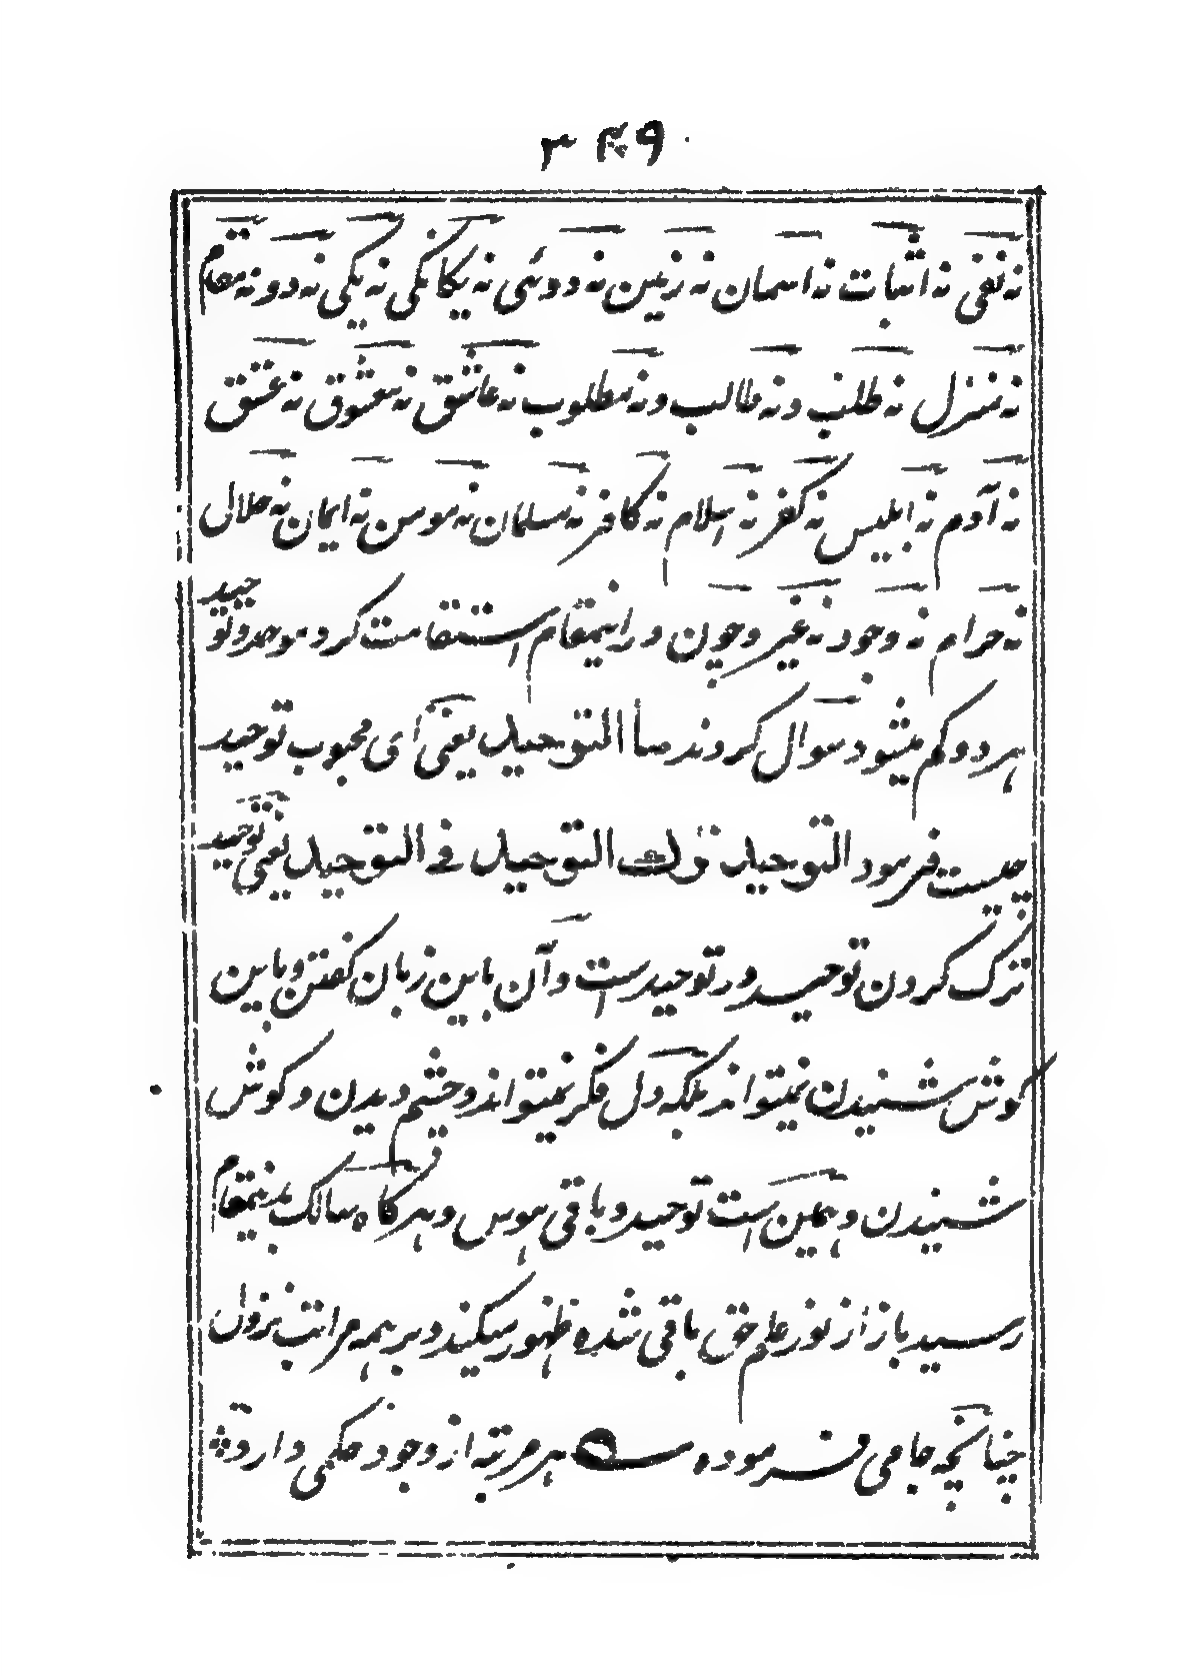 ۳۴۹
نه نفی نه اثبات نه اسمان نه زمین نه دوئی نه یکانکی نه یکی نه دو نه مقام
نه منزل نه طلب و نه طالب و نه مطلوب نه عاشق نه معشوق نه عشق
نه آدم نه ابلیس نه کفر نه اسلام نه کافر نه مسلمان نه مومن نه ایمان نه حلال
نه حرام نه وجود نه غیر و چون در اینمقام استقامت کرد موحد و توحید
هر دو کم میشود سوال کردند ما التوحید یعنی ای محبوب توحید
چیست فرمود التوحید ترک التوحید فی التوحید یعنی توحید
ترک کردن توحید در توحید است و آن باین زبان کفتن و باین
کوش شنیدن نمیتواند بلکه دل فکر نمیتواند و چشم دیدن و کوش
شنیدن و همین است توحید و باقی هوس و هر کاه سالک بدینمقام
رسید باز از نور علم حق باقی شده ظهور میکند و بر همه مراتب نزول
چنانچه جامی فرموده هر مرتبه از وجود حکمی دارد